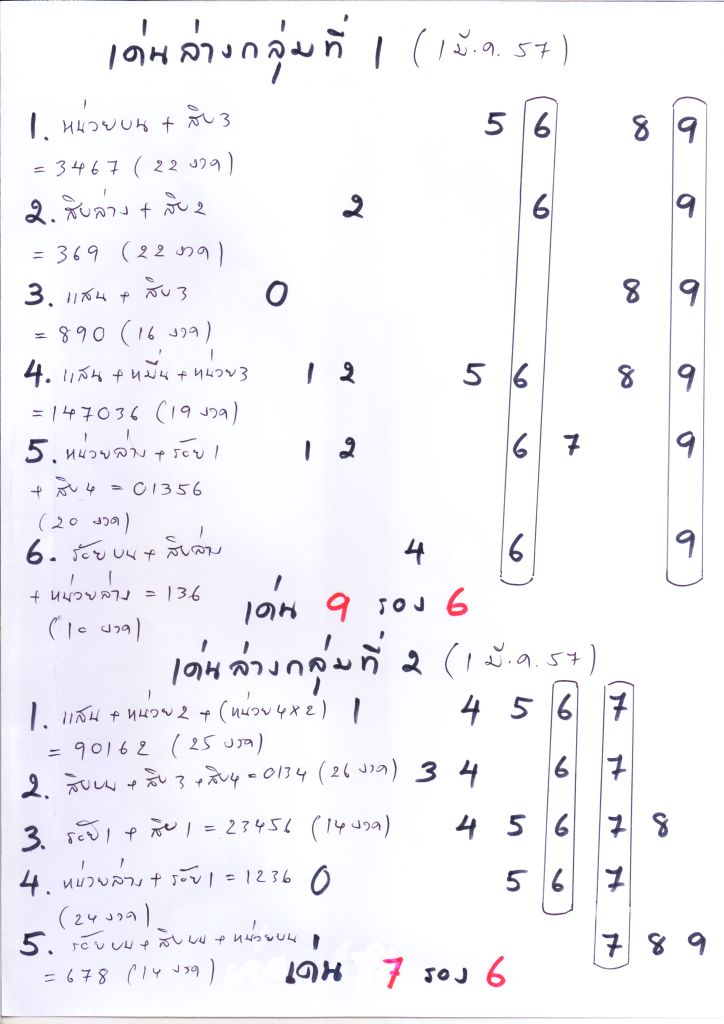 เด่นล่างกลุ่มที่ 1 (1 มี.ค. 57)
1. หน่วยบน + สิบ 3 5 6 8 9
= 3467 (22 งวด)
2. สิบล่าง + สิบ 2 2 6 9
= 369 (22 งวด)
3. แสน + สิบ 3 0 8 9
= 890 (16 งวด)
4. แสน + หมื่น + หน่วย 3 1 2 5 6 8 9
= 147036 (19 งวด)
5. หน่วยล่าง + ร้อย 1 1 2 6 7 9
+ สิบ 4 = 01356
(20 งวด)
6. ร้อยบน + สิบล่าง 4 6 9
+ หน่วยล่าง = 136
(10 งวด)
เด่น 9 รอง 6
เด่นล่างกลุ่มที่ 2 (1 มี.ค. 57)
1. แสน + หน่วย 2 + (หน่วย 4x2) 1 4 5 6 7
= 90162 (25 งวด)
2. สิบบน + สิบ 3 + สิบ 4 = 0134 (26 งวด) 3 4 6 7
3. ร้อย 1 + สิบ 1 = 23456 (14 งวด) 4 5 6 7 8
4. หน่วยล่าง + ร้อย 1 = 1236 0 5 6 7
(24 งวด)
5. ร้อยบน + สิบบน + หน่วยบน 7 8 9
= 678 (14 งวด)
เด่น 7 รอง 6